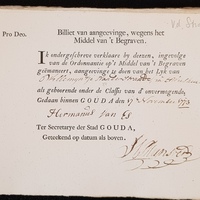 Vd Star
Pro Deo.
Billiet van aangeevinge, wegens het
Middel van 't Begraven.
Ik ondergeschreve verklaare by deezen, ingevolge
van de Ordonnantie op 't Middel van 't Begraven
geëmaneert, aangeevinge te doen van het Lyk van
als gehoorende onder de Classis van d' onvermogende;
Gedaan binnen GOUDA, den 17 November 1793
Hermanus van Es
Ter Secretarye der Stad GOUDA,
Geteekend op datum als boven.